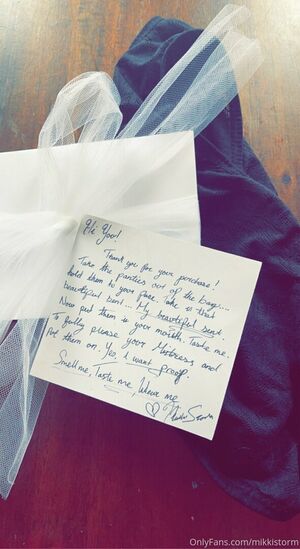 Hi You!
Thank you for your purchase!
Take the panties out of the bag...
hold them to your face. Take in that
beautiful scent... My beautiful scent.
Now put them in your mouth. Taste me.
To fully please your Mistress and
Put them on. Yes, I want proof.
Smell me, Taste me, Wear me
OnlyFans.com/mikkistorm